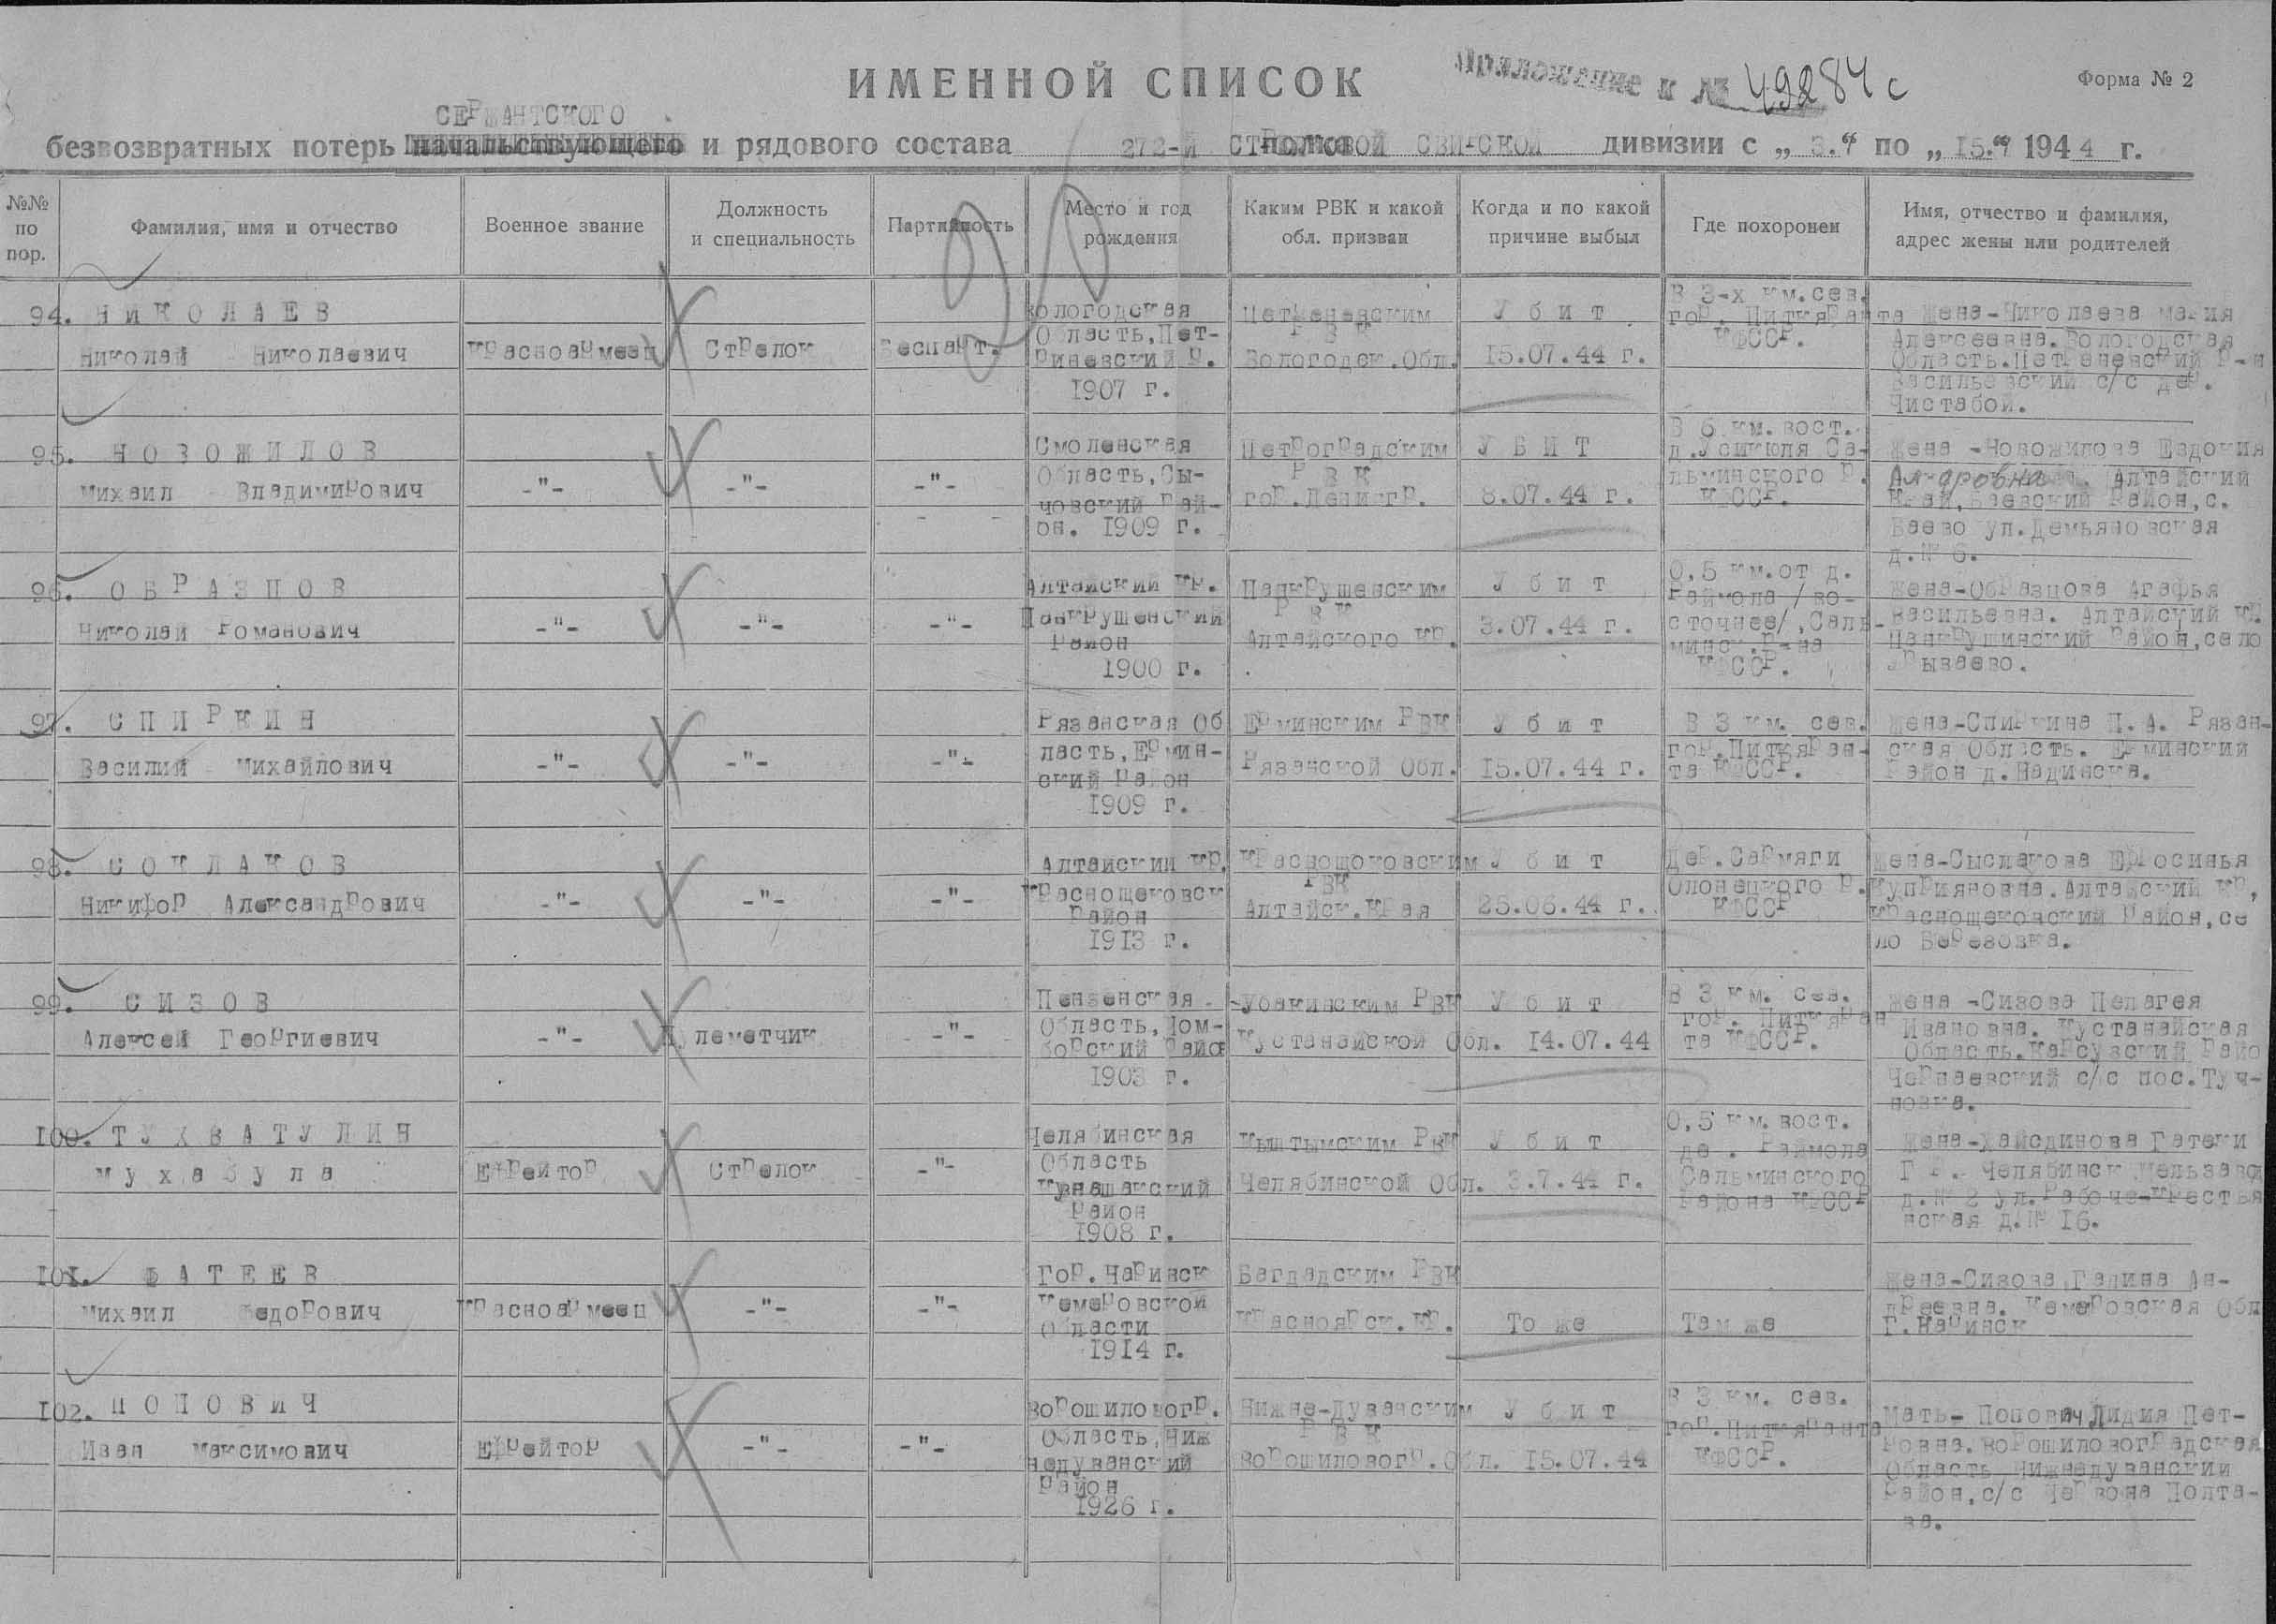 ИМЕННОЙ СПИСОК
Приложение к № 49284с
Форма № 2
СЕРЖАНТСКОГО
безвозвратных потерь начальствующего и рядового состава 272-й СТРЕЛКОВОЙ СВИРСКОЙ дивизии с „ 3.7 по „ 15.7 1944 г.
№№ по пор.
Фамилия, имя и отчество
Военное звание
Должность и специальность
Партийность
Место и год рождения
Каким РВК и какой обл. призван
Когда и по какой причине выбыл
Где похоронен
Имя, отчество и фамилия, адрес жены или родителей
94. НИКОЛАЕВ
Николай Николаевич
Красноармеец
Стрелок
Беспарт.
Вологодская
Область, Пет-
риневский р.
1907 г.
Петриневским
РВК
Вологодск. Обл.
Убит
15.07.44 г.
В 3-х км. сев.
гор. Питкяранта
КФССР.
Жена-Николаева Мария
Алексеевна. Вологодская
Область. Петреневский Р-н
Васильевский с/с дер.
Чистабой.
95. НОВОЖИЛОВ
Михаил Владимирович
-"-
-"-
-"-
Смоленская
Область, Сы-
човский рай-
он. 1909 г.
Петроградским
РВК
гор. Ленингр.
УБИТ
8.07.44 г.
В 6 км. вост.
д. Усикюля Са-
льминского Р.
КФССР.
Жена -Новожилова Евдокия
Алтайский
Край, Баевский Район, с.
Баево ул. Демьяновская
д.№ 6.
96. ОБРАЗЦОВ
Николай Романович
-"-
-"-
-"-
Алтайский Кр.
Панкрушенский
Район
1900 г.
Панкрушевским
РВК
Алтайского Кр.
Убит
3.07.44 г.
0,5 км. от д.
Раймола /во-
сточнее/, Саль-
минск. Р-на
КФССР.
Жена-Образцова Агафья
Васильевна. Алтайский Кр.
Панкрушинский Район, село
97. СПИРКИН
Василий Михайлович
-"-
-"-
-"-
Рязанская Об
ласть, Ермин-
ский Район
1909 г.
Ерминским РВК
Рязанской Обл.
Убит
15.07.44 г.
В 3 км. сев.
гор. Питкяран-
та КФССР.
Жена-Спиркина П.А. Рязан-
ская Область. Ерминский
Район д. Надинска.
98. СОКЛАКОВ
Никифор Александрович
-"-
-"-
-"-
Алтайский Кр.
Краснощековск
Район
1913 г.
Краснощоковским
РВК
Алтайск. Края
Убит
25.06.44 г.
Дер. Сармяги
Олонецкого Р.
КФССР
Жена-Сыслакова Ефросинья
Куприяновна. Алтайский Кр,
Краснощековский Район, се
ло Березовка.
99. СИЗОВ
Алексей Георгиевич
-"-
Пулеметчик
-"-
Пензенская
Область, Пом-
борский Район
1903 г.
РВК
Кустанайской Обл.
Убит
14.07.44
В 3 км. сев.
гор. Питкяран
та КФССР.
Жена -Сизова Пелагея
Ивановна. Кустанайская
Область. Карсуский Райо
Черняевский с/с пос. Туч-
новка.
100. ТУХВАТУЛИН
Мухабула
Ефрейтор
Стрелок
-"-
Челябинская
Область
Кунашакский
Район
1908 г.
Кыштымским РВК
Челябинской Обл.
Убит
3.7.44 г.
0,5 км. вост.
де . Раймола
Сальминского
Района КФССР
Жена-Хайсдинова Гатеки
Г Р. Челябинск Мельзавод
д.№ 2 ул. Рабоче-Крестья
нская д.№ 16.
101. ФАТЕЕВ
Михаил Федорович
Красноармеец
-"-
-"-
Гор. Чаринск
Кемеровской
Области
1914 г.
Багдадским РВК
Красноярск. Кр.
То же
Там же
Жена-Сизова Галина Ан-
дреевна. Кемеровская Обл
102. ПОПОВИЧ
Иван Максимович
Ефрейтор
-"-
-"-
Ворошиловогр.
Область, Ниж
недуванский
Район
1926 г.
Нижне-Дуванским
РВК
Ворошиловогр. Обл.
Убит
15.07.44
В 3 км. сев.
гор. Питкяранта
КФССР.
Мать- Попович Лидия Пет-
ровна. Ворошиловоградская
Область Нижнедуванский
Район, с/с Червона Полта-
ва.